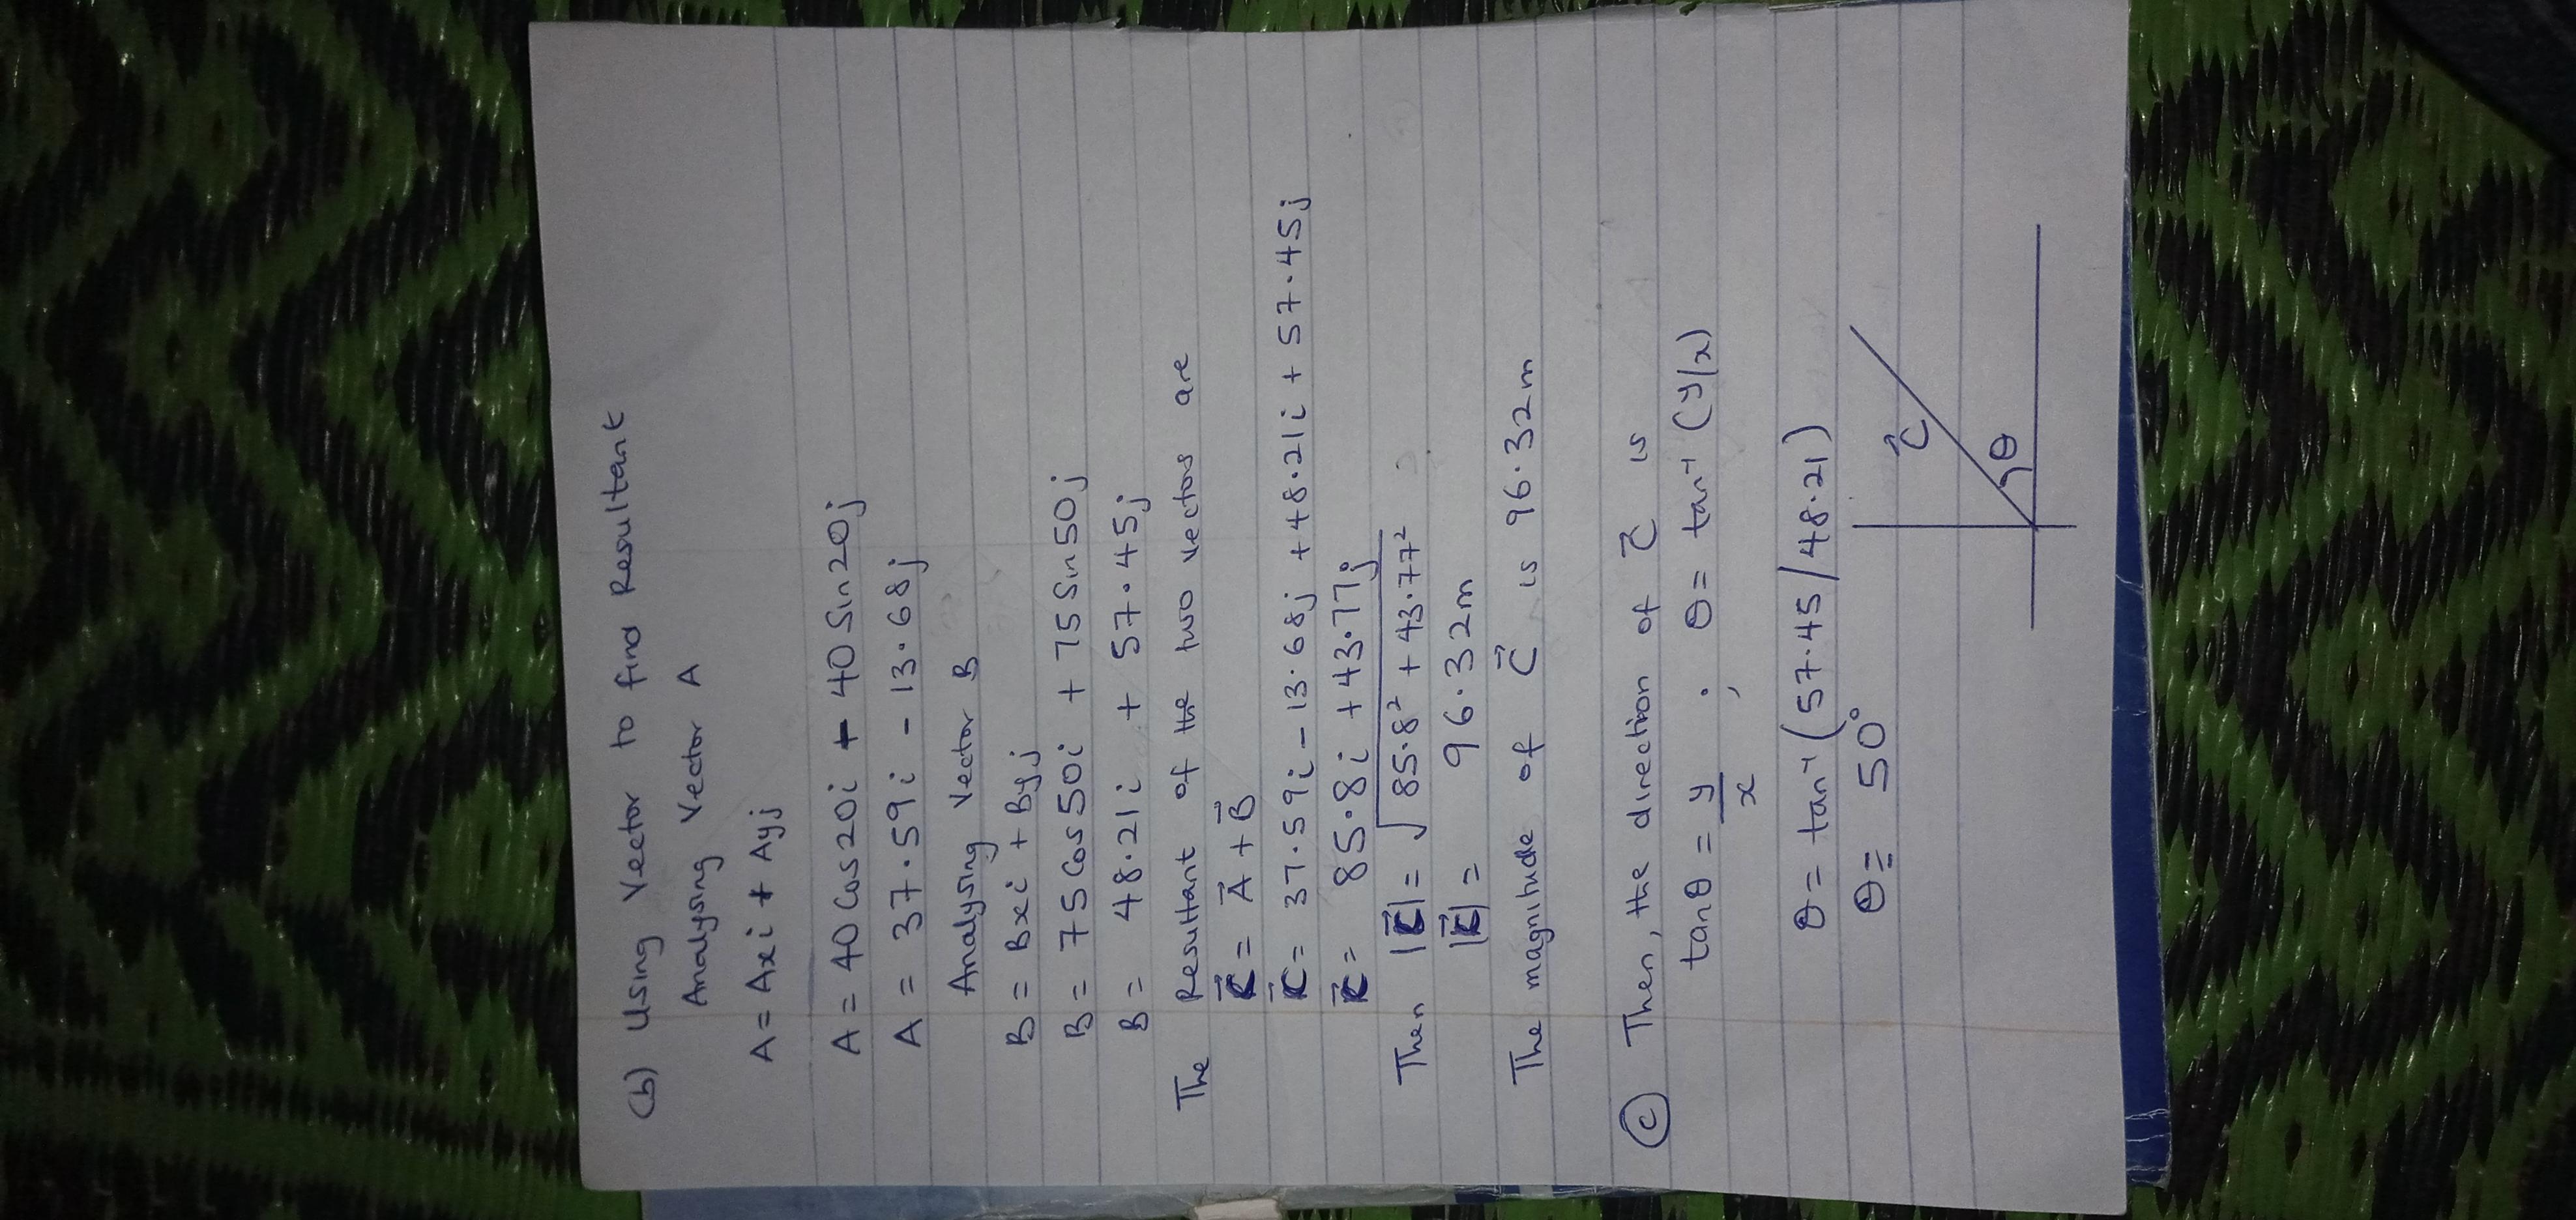 (b) Using Vector to find Resultant
Analysing Vector A
A = Axi + Ayj
A = 40 Cos20i + 40 Sin20j
A = 37.59i - 13.68j
Analysing Vector B
B = Bxi + Byj
B = 75 Cos50i + 75 Sin50j
B = 48.21i + 57.45j
The Resultant of the two vectors are
C⃗ = A⃗ + B⃗
C⃗ = 37.59i - 13.68j + 48.21i + 57.45j
C⃗ = 85.8i + 43.77j
Then |C⃗| = √85.8² + 43.77²
|C⃗| = 96.32m
The magnitude of C⃗ is 96.32m
(c) Then, the direction of C⃗ is
tanθ = y/x ; θ = tan⁻¹ (y/x)
θ = tan⁻¹ (57.45/48.21)
θ = 50°
C⃗
θ